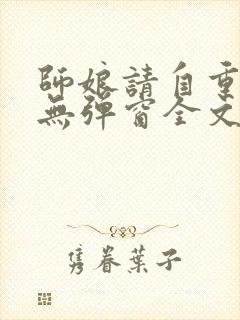 師娘請自重
無彈窗全文
隽眷葉子